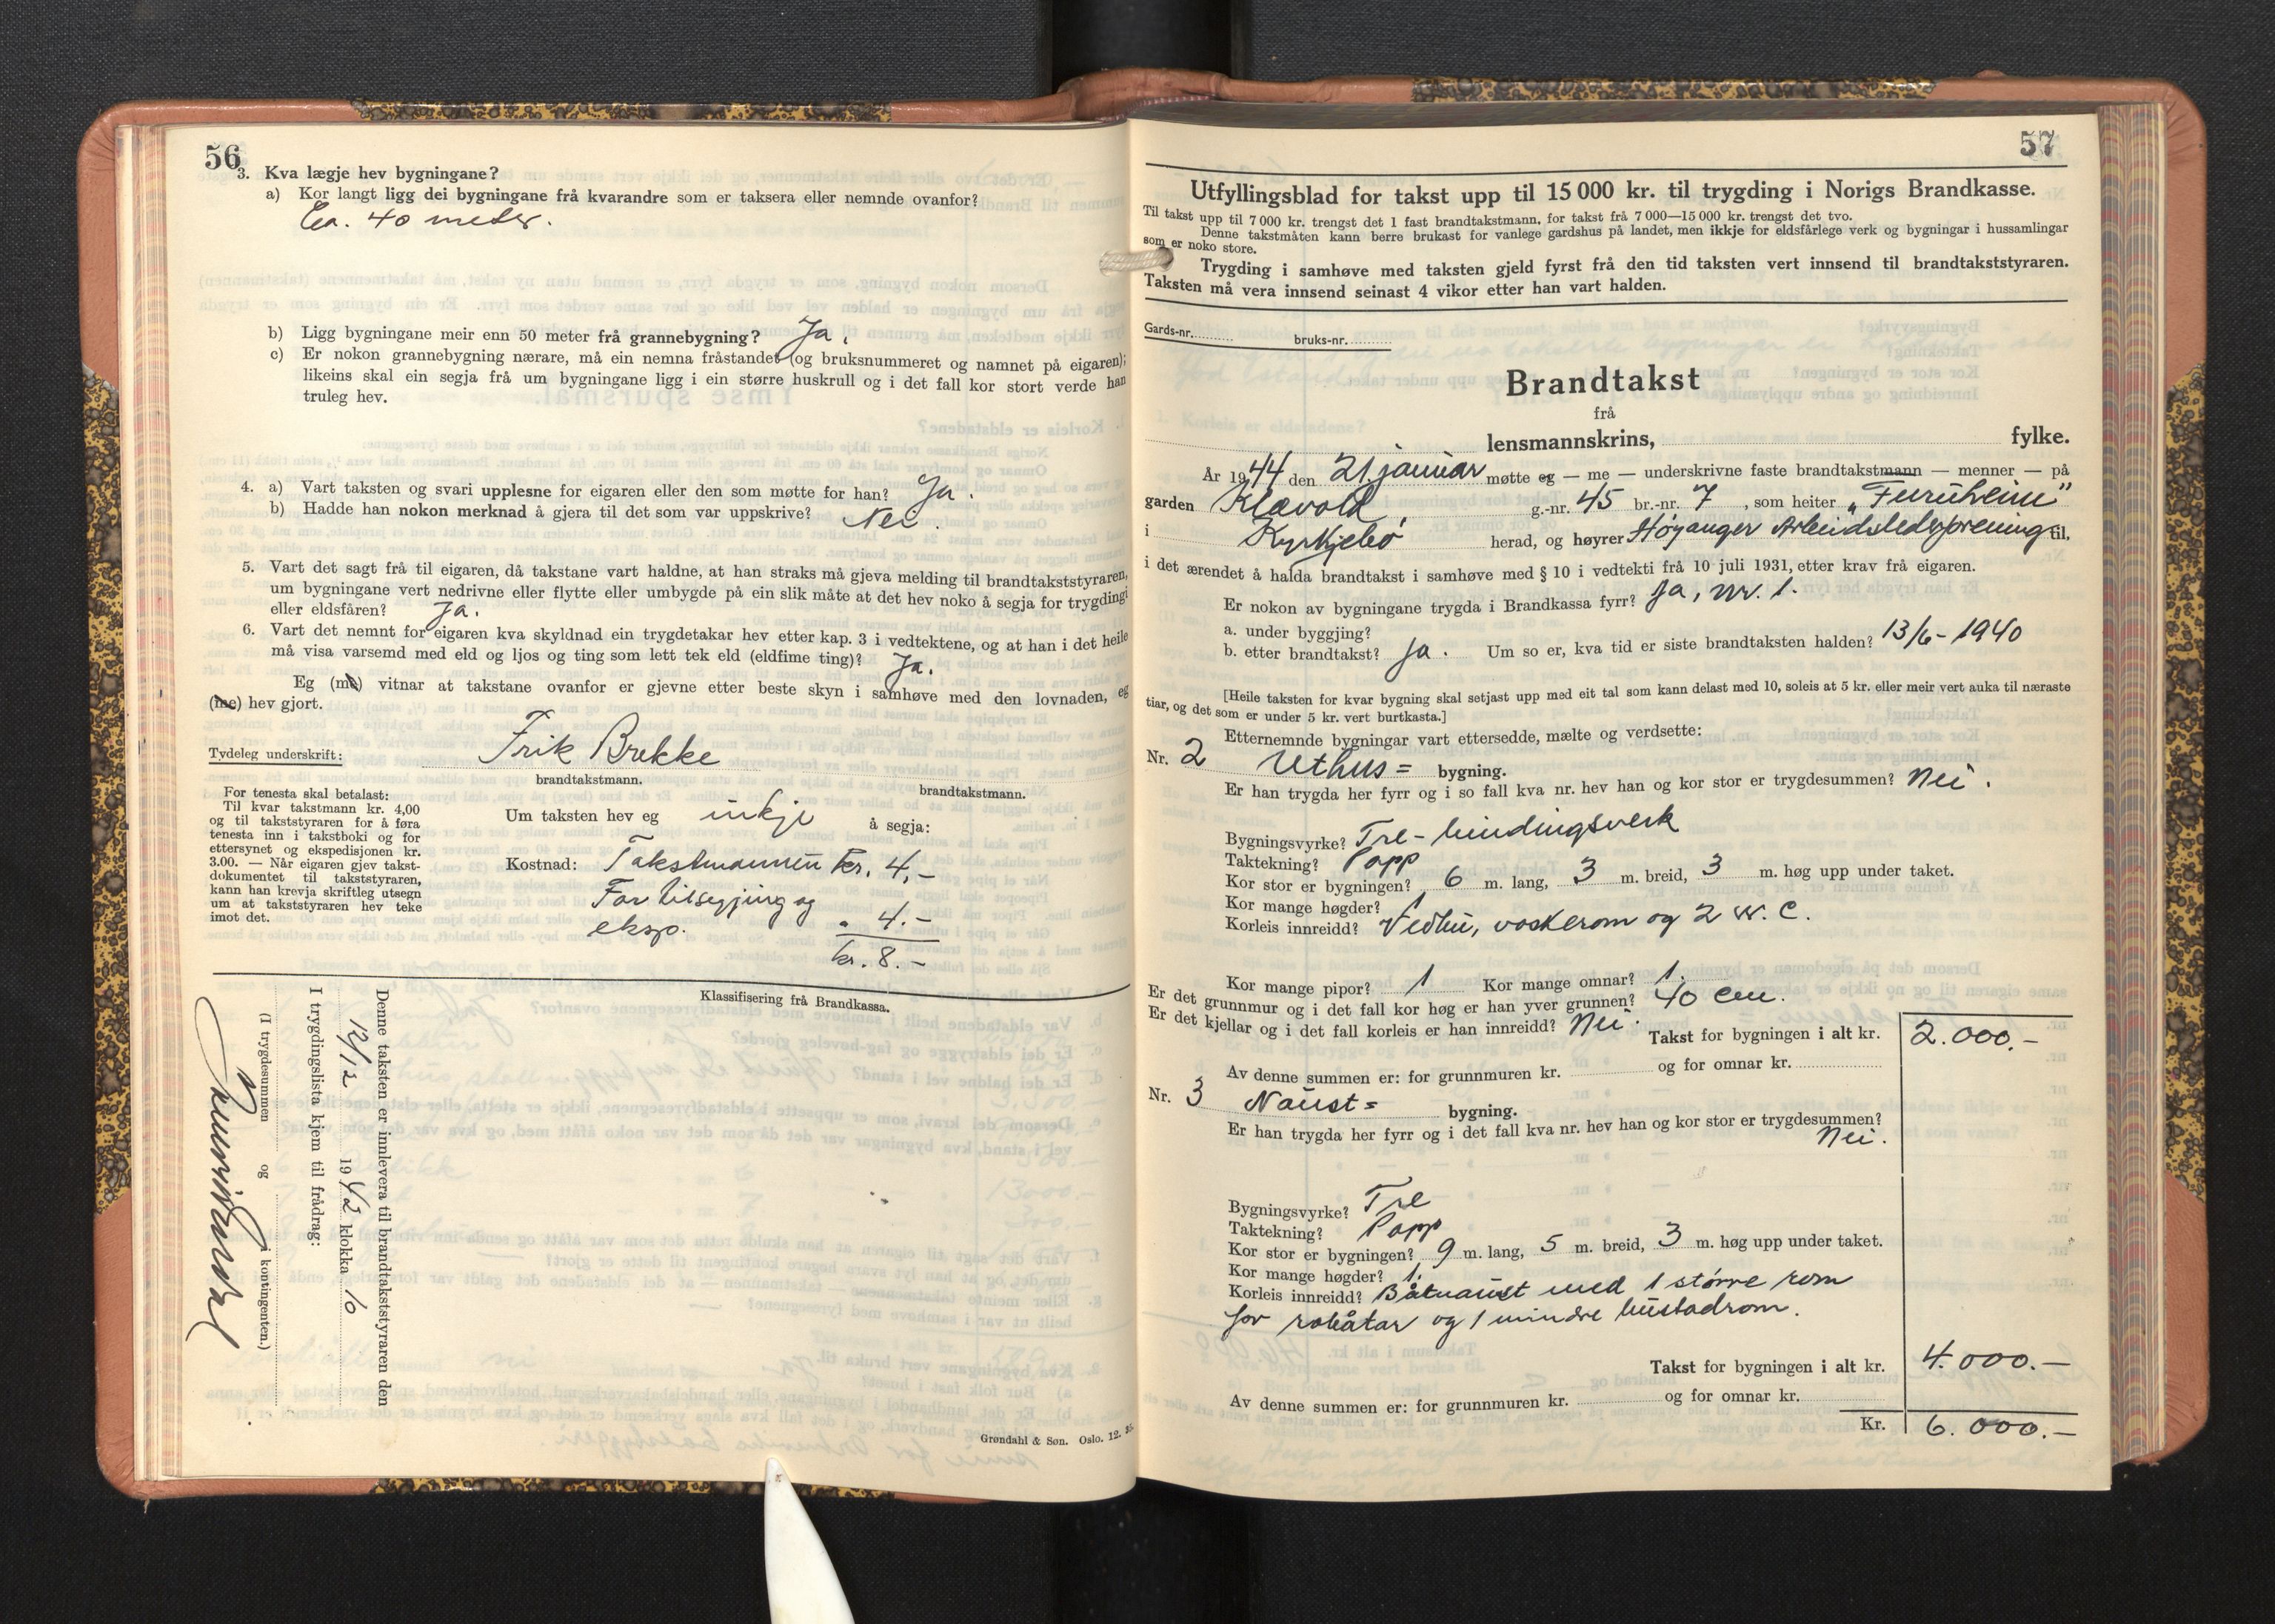 56
3. Kva lægje hev bygningane?
a) Kor langt ligg dei bygningane frå kvarandre som er taksera eller nemnde ovanfor?
Ca. 40 meter.
b) Ligg bygningane meir enn 50 meter frå grannebygning? Ja.
c) Er nokon grannebygning nærare, må ein nemna fråstandet (og bruksnummeret og namnet på eigaren);
likeins skal ein segja frå um bygningane ligg i ein større huskrull og i det fall kor stort verde han
truleg hev.
4. a) Vart taksten og svari upplesne for eigaren eller den som møtte for han? Ja.
b) Hadde han nokon merknad å gjera til det som var uppskrive? Nei.
5. Vart det sagt frå til eigaren, då takstane vart haldne, at han straks må gjeva melding til brandtakststyraren,
um bygningane vert nedrivne eller flytte eller umbygde på ein slik måte at det hev noko å segja for trygdingi
eller eldsfåren? Ja.
6. Vart det nemnt for eigaren kva skyldnad ein trygdetakar hev etter kap. 3 i vedtektene, og at han i det heile
må visa varsemd med eld og ljos og ting som lett tek eld (eldfime ting)? Ja.
Eg (me) vitnar at takstane ovanfor er gjevne etter beste skyn i samhøve med den lovnaden, eg
(me) hev gjort.
Tydeleg underskrift: Frik Brekke
brandtakstmann. brandtakstmann.
For tenesta skal betalast:
Til kvar takstmann kr. 4,00
og til takststyraren for å føra
tenesta inn i takstboki og for
ettersynet og ekspedisjonen kr.
3.00. — Når eigaren gjev takst-
dokumentet til takststyraren,
kann han krevja skriftleg utsegn
um at takststyraren hev teke
imot det.
Um taksten hev eg inkje å segja:
Kostnad: Takstmannen kr. 4,-
For tilsegjing og
eksp. " 4.-
kr. 8.-
Klassifisering frå Brandkassa.
Denne taksten er innlevera til brandtakststyraren den
12/12 1942 klokka 10
I trygdingslista kjem til frådrag:
(I trygdesummen og i kontingenten.)
Grøndahl & Søn. Oslo. 12. 35.
57
Utfyllingsblad for takst upp til 15 000 kr. til trygding i Norigs Brandkasse.
Til takst upp til 7 000 kr. trengst det 1 fast brandtakstmann, for takst frå 7 000—15 000 kr. trengst det tvo.
Denne takstmåten kann berre brukast for vanlege gardshus på landet, men ikkje for eldsfårlege verk og bygningar i hussamlingar
som er noko store.
Trygding i samhøve med taksten gjeld fyrst frå den tid taksten vert innsend til brandtakststyraren.
Taksten må vera innsend seinast 4 vikor etter han vart halden.
Gards-nr. bruks-nr.
Brandtakst
frå
lensmannskrins, fylke.
År 1944 den 21. januar møtte eg — me — underskrivne faste brandtakstmann — menner — på
garden Klævold, g.-nr. 45 br.-nr. 7, som heiter „Furuheim”
i Kyrkjebø herad, og høyrer Høyanger Arbeidslederforening til,
i det ærendet å halda brandtakst i samhøve med § 10 i vedtekti frå 10 juli 1931, etter krav frå eigaren.
Er nokon av bygningane trygda i Brandkassa fyrr? Ja, nr. 1.
a. under byggjing?
b. etter brandtakst? Ja. Um so er, kva tid er siste brandtaksten halden? 13/6-1940
[Heile taksten for kvar bygning skal setjast upp med eit tal som kann delast med 10, soleis at 5 kr. eller meir vert auka til næraste
tiar, og det som er under 5 kr. vert burtkasta.]
Etternemnde bygningar vart ettersedde, mælte og verdsette:
Nr. 2 Uthus= bygning.
Er han trygda her fyrr og i so fall kva nr. hev han og kor stor er trygdesummen? Nei.
Bygningsvyrke? Tre-bindingsverk
Taktekning? Papp
Kor stor er bygningen? 6 m. lang, 3 m. breid, 3 m. høg upp under taket.
Kor mange høgder? 1
Korleis innreidd? Vedhu, vaskerom og 2 W.C.
Kor mange pipor? 1 Kor mange omnar? 1.
Er det grunnmur og i det fall kor høg er han yver grunnen? 40 cm.
Er det kjellar og i det fall korleis er han innreidd? Nei.
Takst for bygningen i alt kr. 2.000.-
Av denne summen er: for grunnmuren kr. og for omnar kr.
Nr. 3 Naust= bygning.
Er han trygda her fyrr og i det fall kva nr. hev han og kor stor er trygdesummen?
Nei.
Bygningsvyrke? Tre
Taktekning? Papp
Kor stor er bygningen? 9 m. lang, 5 m. breid, 3 m. høg upp under taket.
Kor mange høgder? 1.
Korleis innreidd? Båtnaust med 1 større rom
for robåtar og 1 mindre bustadrom.
Takst for bygningen i alt kr. 4.000.-
Av denne summen er: for grunnmuren kr. og for omnar kr.
Kr. 6.000.-